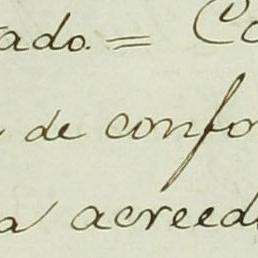 ado. = Co
de confo
a acreed